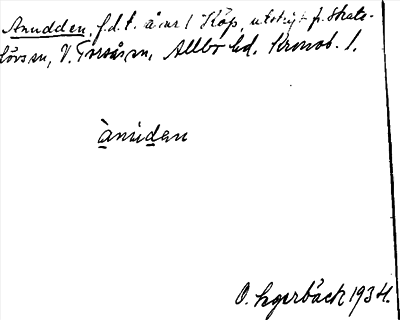 Anudden, f.d.t. å nr 1 Köp, utskift fr. Skate-
lövs sn, V. Torsås sn, Allbo hd. Kronob. l.
ànúdan
O. Lgerbäck 1934.